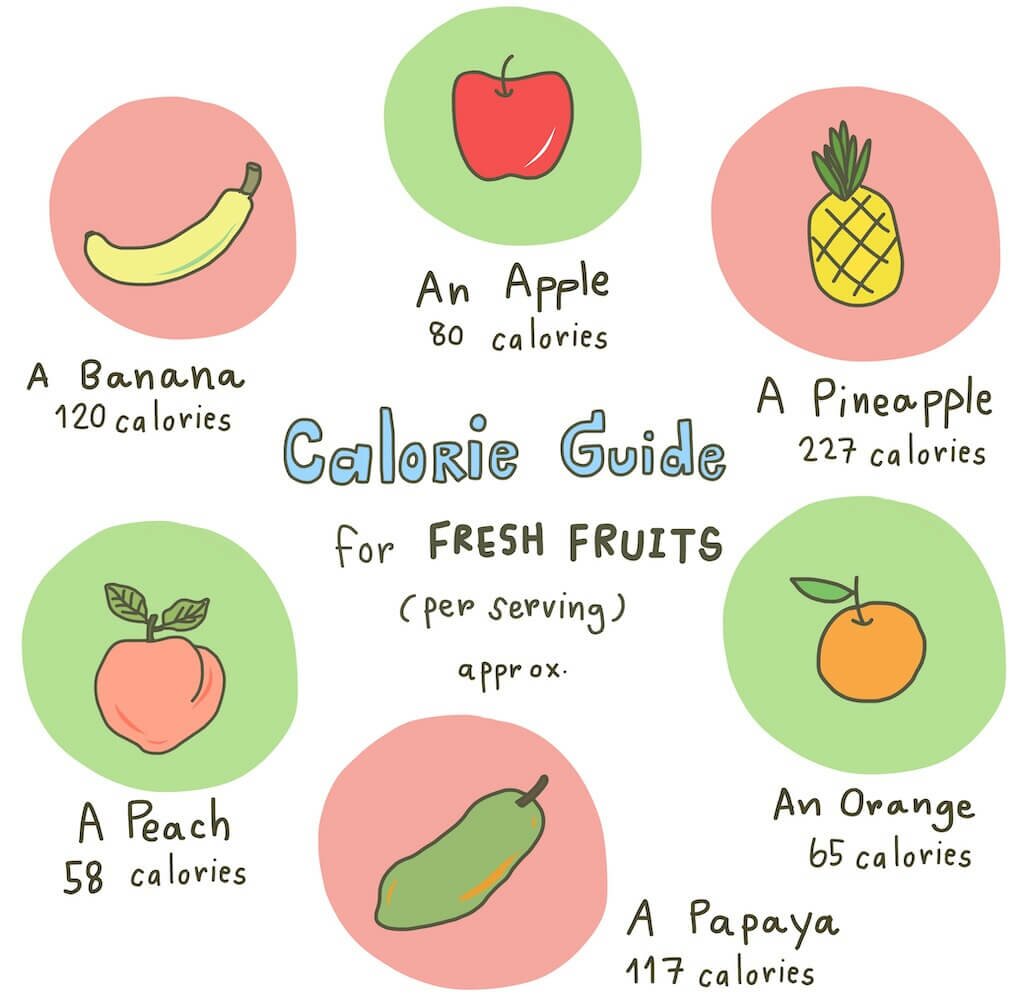 An Apple
80 calories
A Banana
120 calories
A Pineapple
227 calories
Calorie Guide
for FRESH FRUITS
(per serving)
approx.
A Peach
58 calories
An Orange
65 calories
A Papaya
117 calories